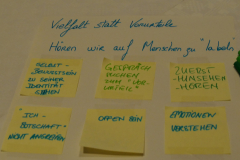 Vielfalt statt Vorurteile
Hören wie auf Menschen zu "labeln"
SELBST-
BEWUSSTSEIN
ZU SEINER
IDENTITÄT
STEHEN
GESPRÄCH
SUCHEN
ZUM "VOR-
URTEIL"
ZUERST
HINSEHEN
-HÖREN
ICH-
BOTSCHAFT
NICHT ANGREIFEN
OFFEN SEIN
EMOTIONEN
VERSTEHEN